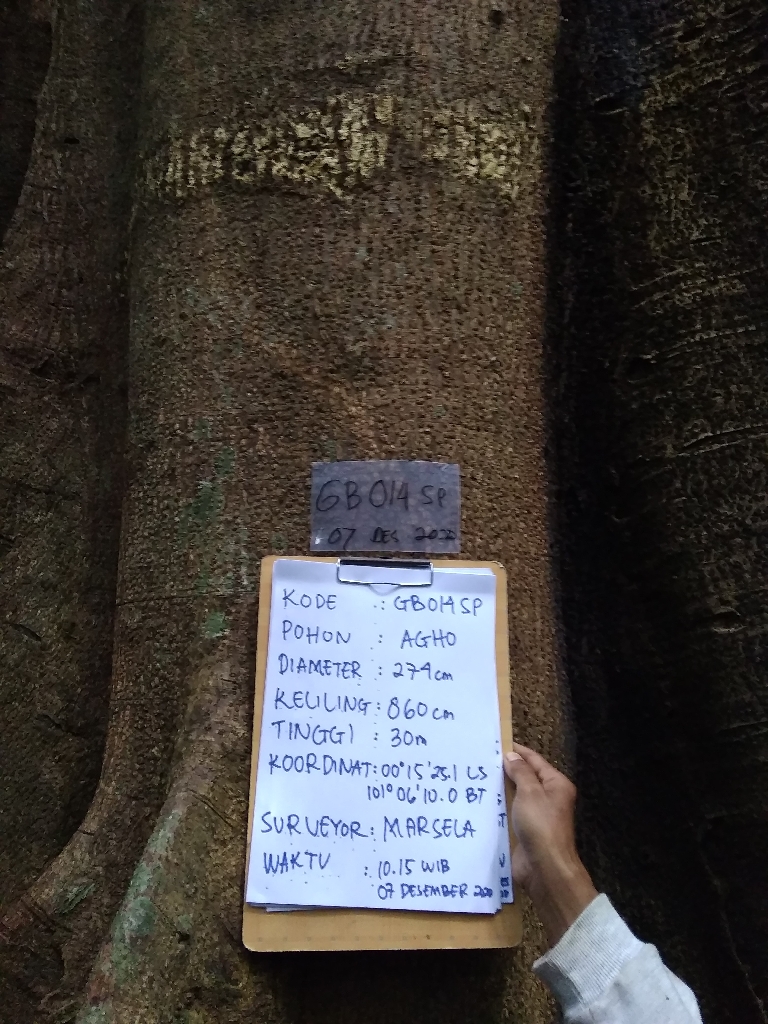 GB 014 SP
07 DES 2020
KODE : GB014SP
POHON : AGHO
DIAMETER : 274cm
KELILING : 860 cm
TINGGI : 30m
KOORDINAT : 00°15'25.1 LS
101°06'10.0 BT
SURVEYOR : MARSELA
WAKTU : 10.15 WIB
07 DESEMBER 2020